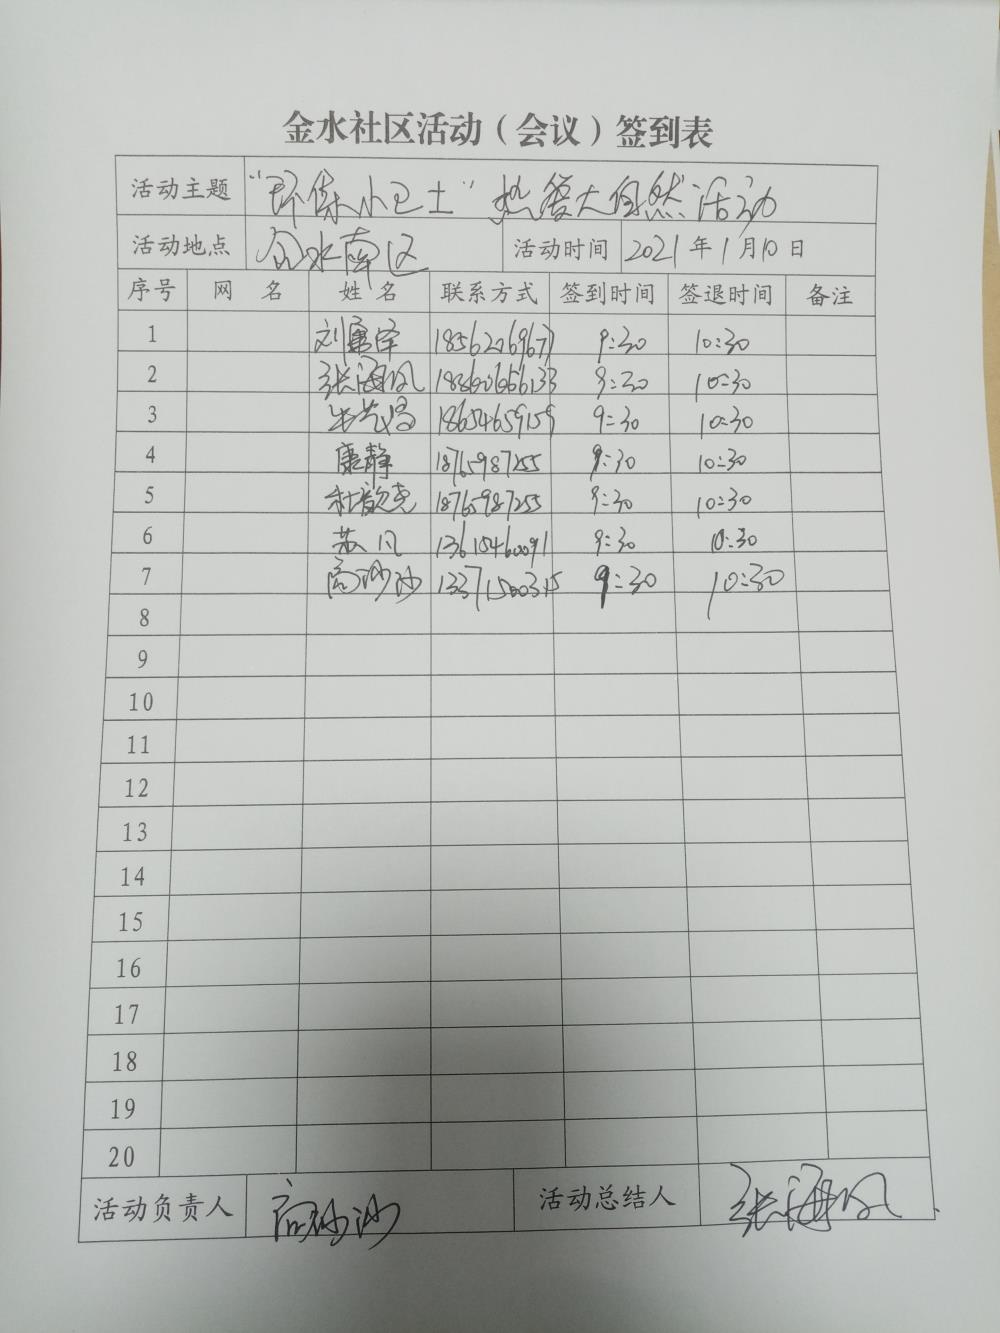 金水社区活动（会议）签到表
活动主题 "环保小卫士" 热爱大自然活动
活动地点 金水南区 活动时间 2021 年 1 月 10 日
序号 网 名 姓 名 联系方式 签到时间 签退时间 备注
1 刘 泽 9:30 10:30
2 张海凤 9:30 10:30
3 18654659159 9:30 10:30
4 康静 18765987255 9:30 10:30
5 杜歆尧 18765987255 9:30 10:30
6 苏凡 13615460091 9:30 10:30
7 高沙沙 13371560315 9:30 10:30
8
9
10
11
12
13
14
15
16
17
18
19
20
活动负责人 高沙沙 活动总结人 张海凤